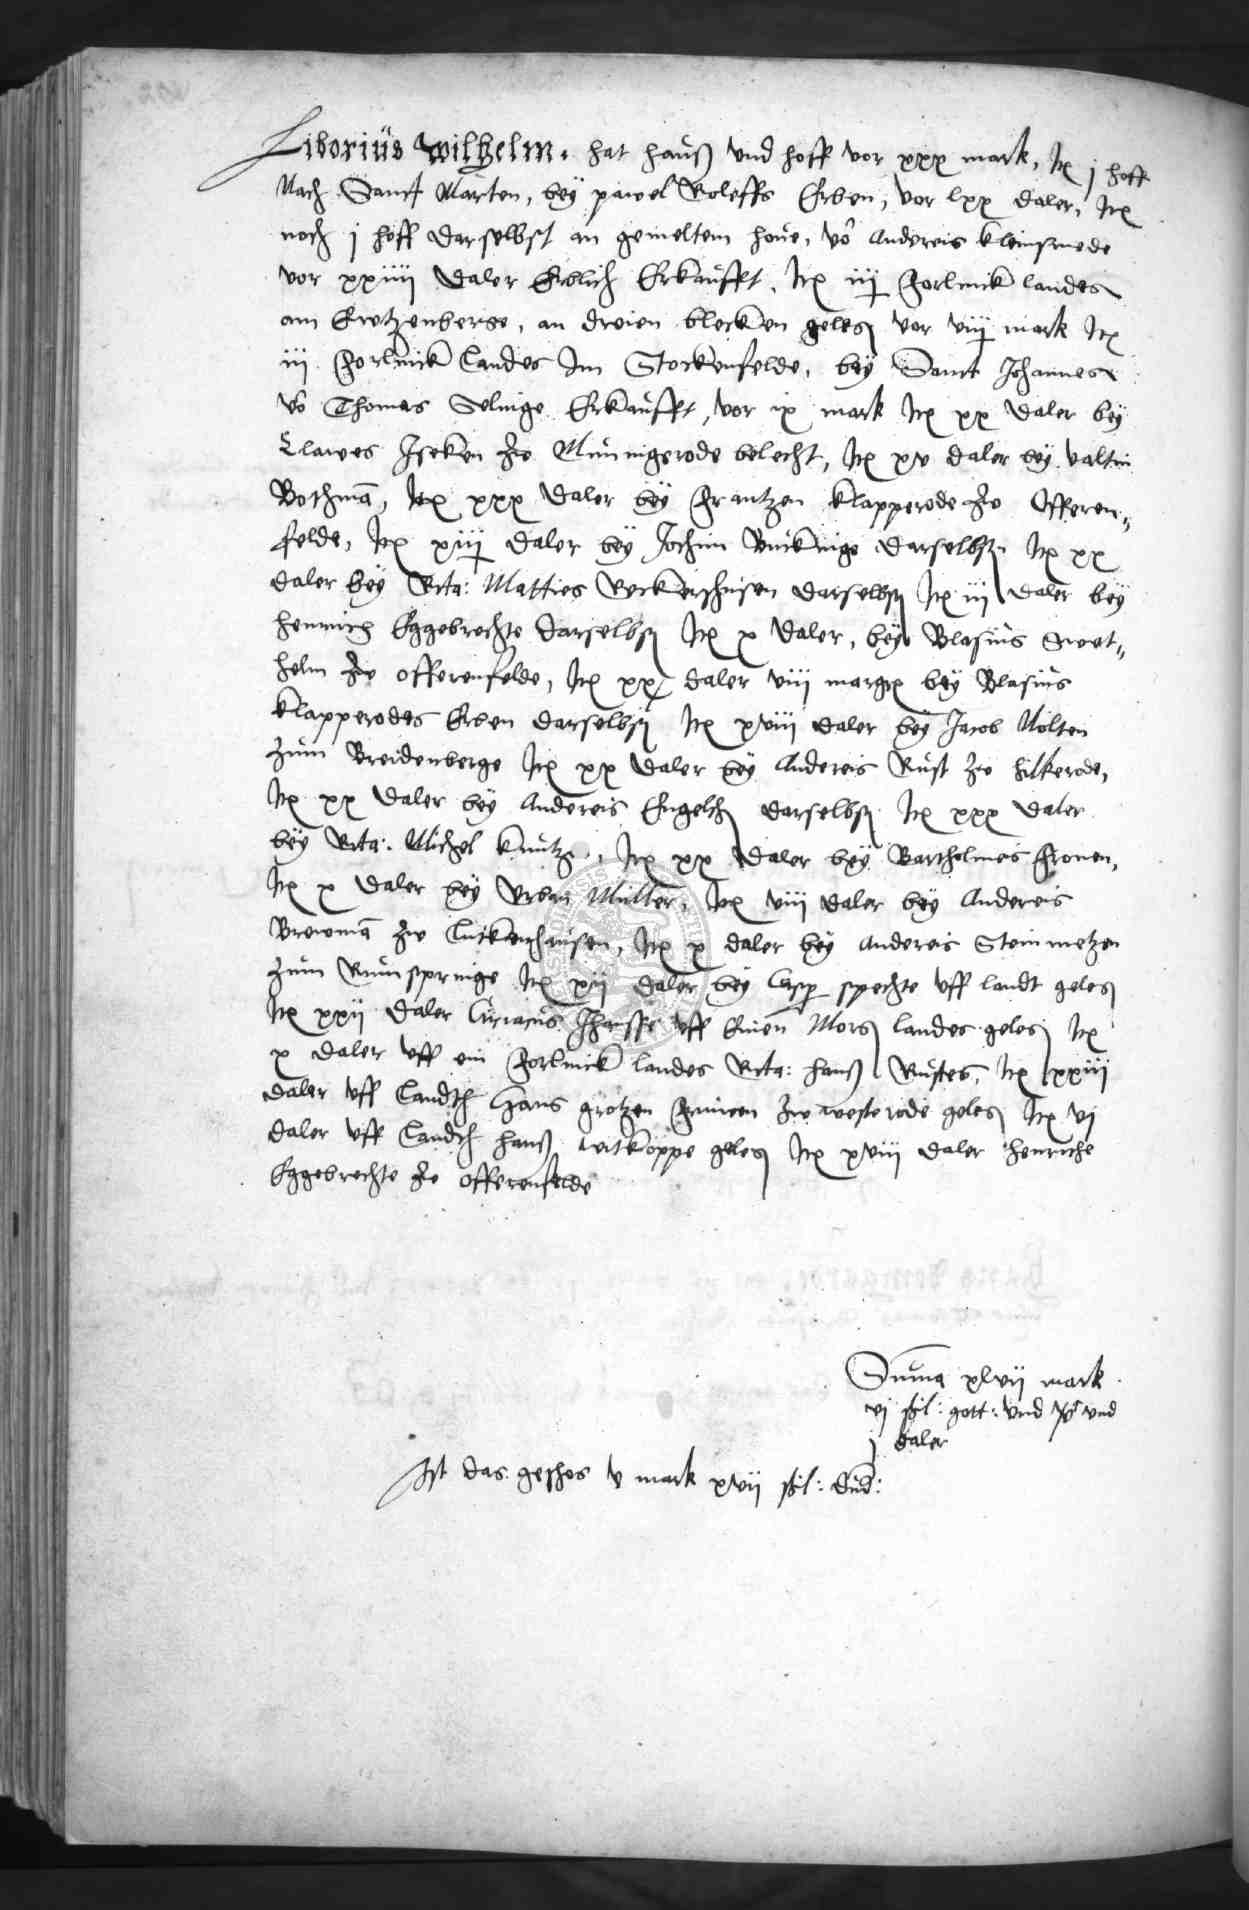 Liborius Wilhelm. hat hauß und hoff vor xxx mark, Itē j hoff
Nach Sanct Marten, bey pawel Roleffs Erben, vor lxx daler, Itē
noch j hoff darselbst an gemeltem houe, vō Andereis kleinsmede
vor xxiiii daler Erblich Erkaufft, Itē iij forlinck landes
am Creutzenberge, an dreien blecken geleg vor viij mark Itē
iii forlinck landes Im Stockenfelde, bey Sanct Johannes
vō Thomas Selnige Erkaufft, vor ix mark Itē xx daler bey
Clawes Iseken zw Mūnnigerode belecht, Itē xv daler bey valtin
Bothmā, Itē xxx daler bey Frantzen klapperode zw Offeren„
felde, Itē xiij daler bey Jochim Buckinge darselbst Itē xx
daler bey Rta: Matties Reckershusen darselbst Itē iij daler bey
Henrich Eggebrechte darselbst Itē x daler, bey Blasius Sweet„
helm zw offerenfelde, Itē xx daler viii margr bey Blasius
klapperodes Erben darselbst Itē xviii daler bey Jacob Nolten
zum Breidenberge Itē xx daler bey Andereis Rust zw hilkerode,
Itē xx daler bey Andereis Engelh darselbst Itē xxx daler
bey Rta: Michel kuntze, Itē xx daler bey Bartholmes Fronen,
Itē x daler bey Urban Müller, Itē viii daler bey Andereis
Brewmā zw Lutkenhausen, Itē x daler bey Andereis Steinmetzen
zum Rumspringe Itē xij daler bey Casp spechte uff landt geleg
Itē xxii daler Ciriacus uff Einen Morg landes geleg Itē
x daler uff ein forlinck landes Rta: hanß Rustes, Itē lxxiii
daler uff Landth Hans grotzen zw westerode geleg Itē vi
daler uff Landth hanß witkoppe geleg Itē xviii daler Henriche
Eggebrechte zw offerenfelde
Suma xlvii mark
vj ßl: gott: und und
j daler
Ist das geschos v mark xvii ßl: dud: